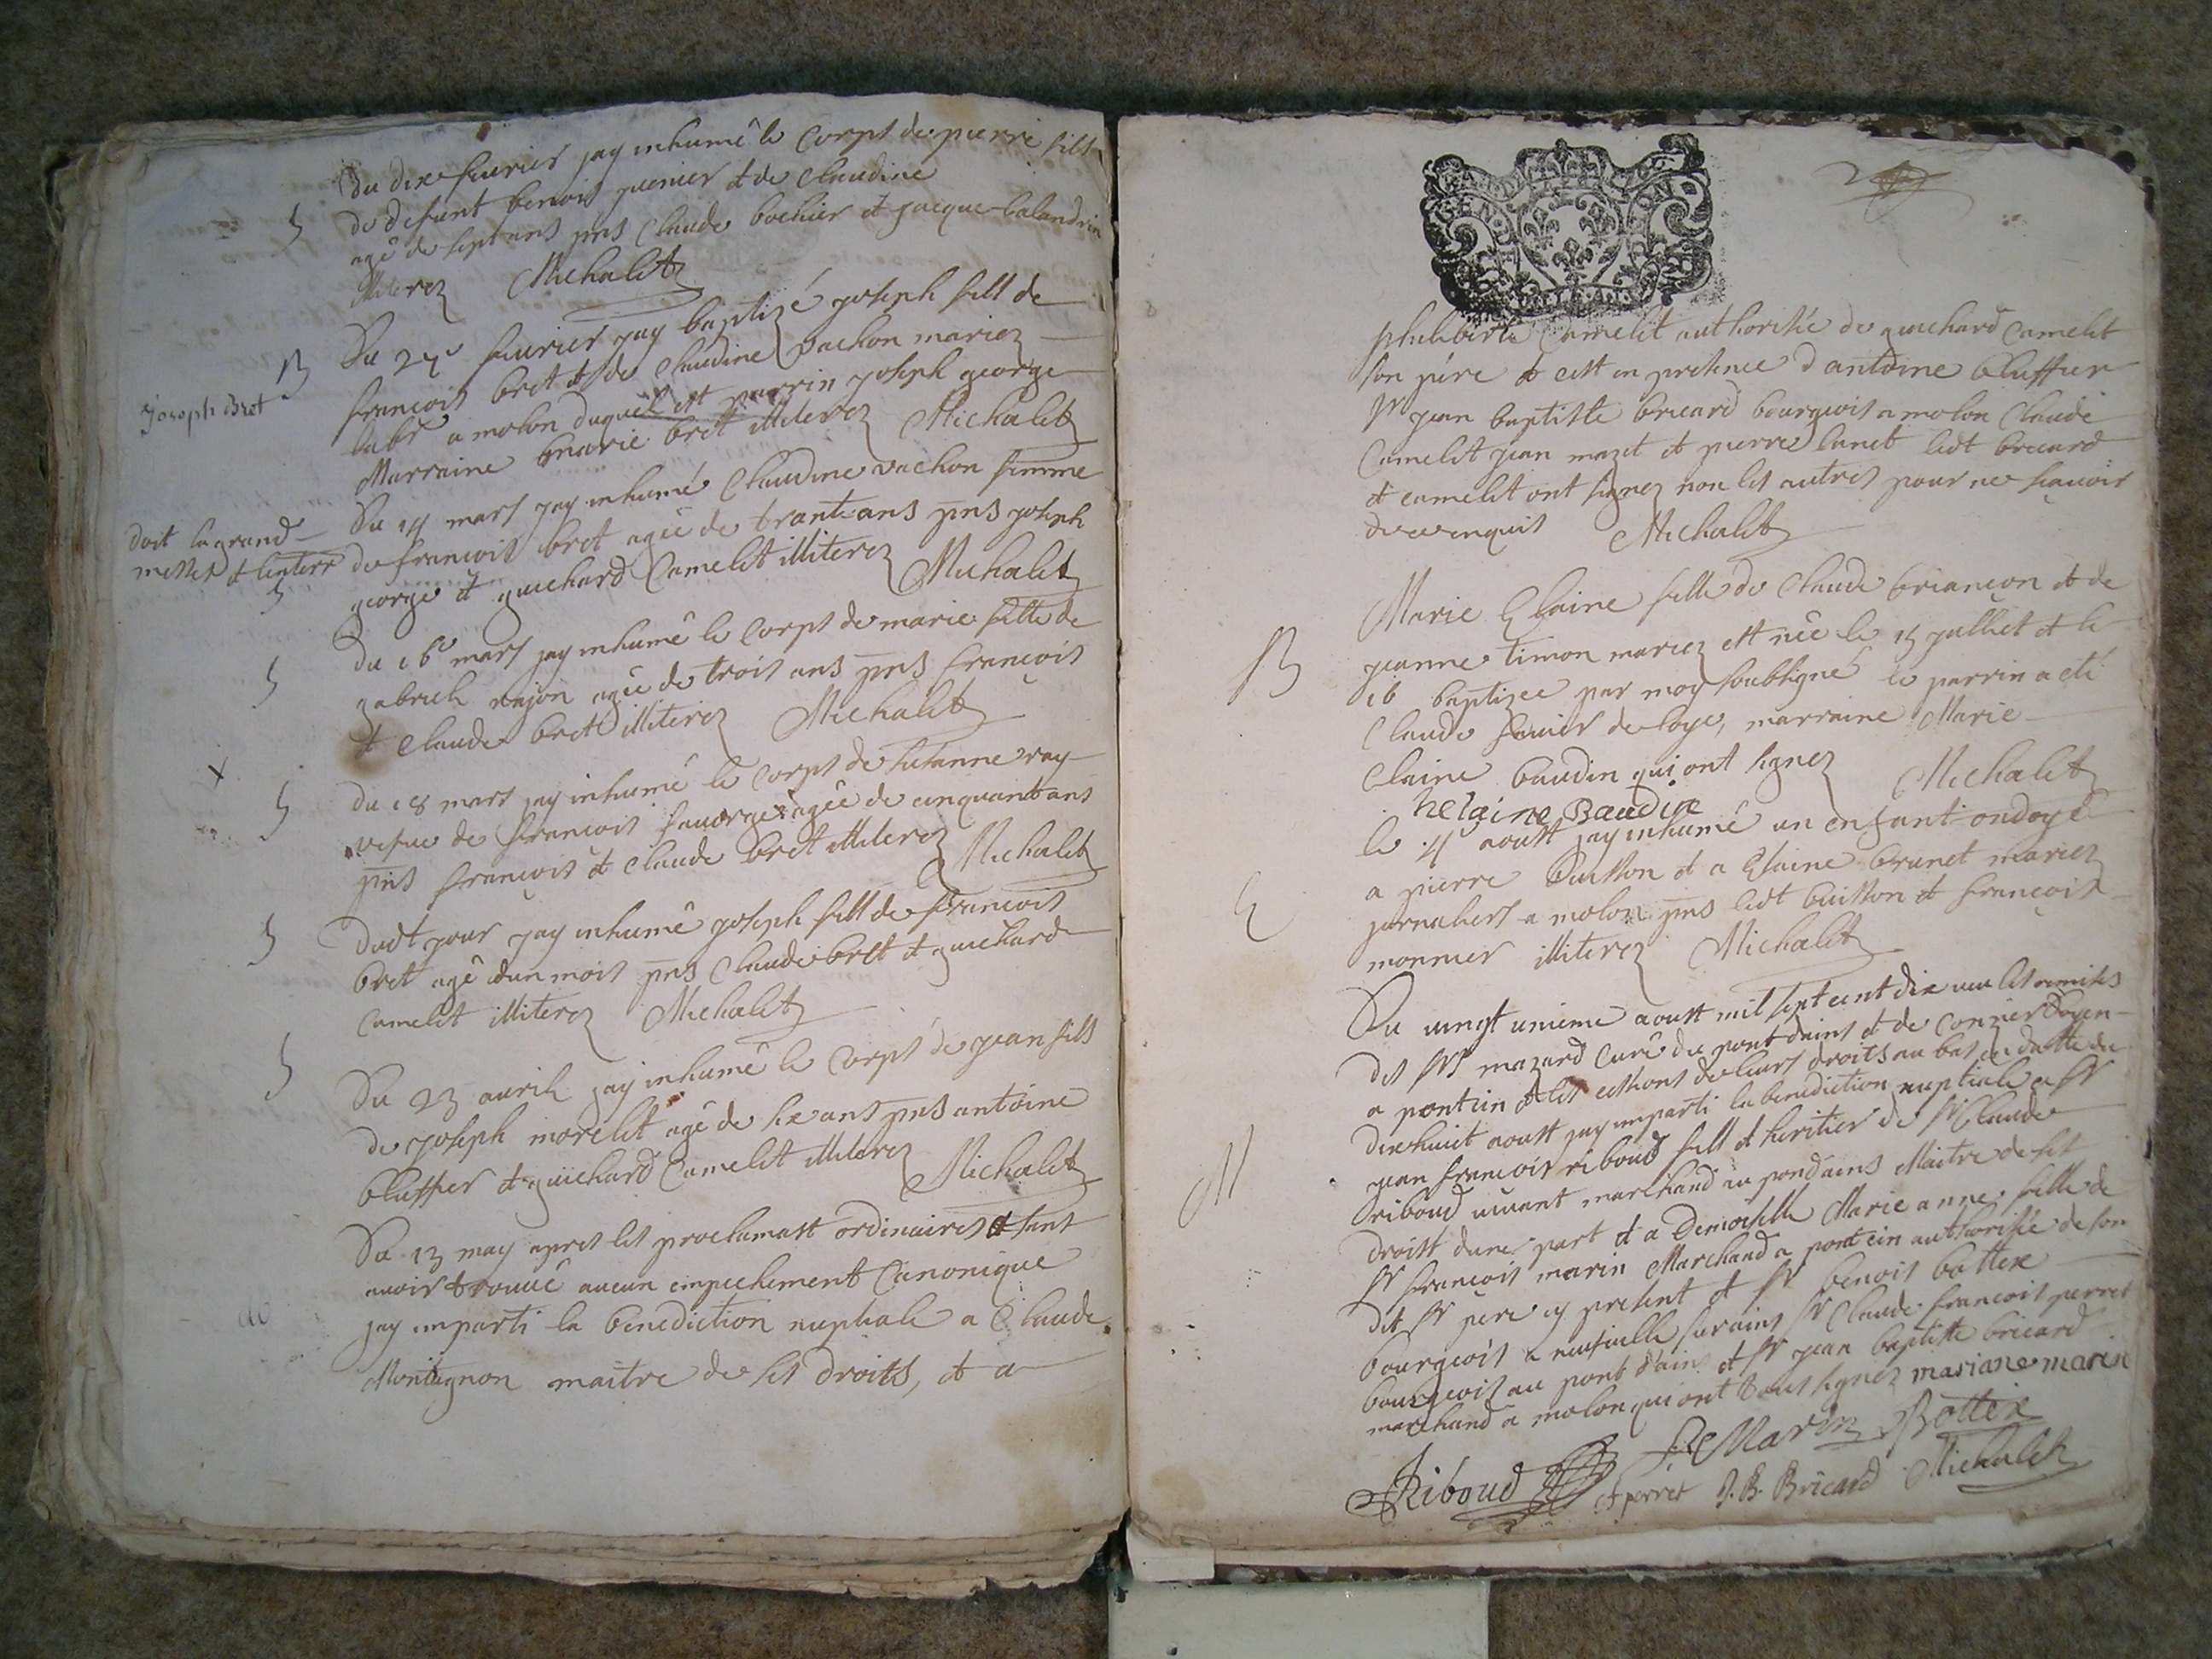 Du dixe feurier jay inhumé le corps de pierre fils
de defunt benoit grenier et de Claudine
agé de sept ans pns Claude bochier et jacque balandrin
illiterez Michalet
B
Joseph Bret
Du 24e feurier jay baptizé joseph fils de
francois bret et de Claudine vachon mariez
labr a molon duquel est parrin joseph george
Marraine marie bret illiterez Michalet
doit la grand
messes et l'enterr
Du 14 mars jay inhumé Claudine vachon femme
de francois bret agée de trante ans pns joseph
george et guichard Camelet illiterez Michalet
du 16e mars jay inhumé le corps de marie fille de
gabriel rajon agée de trois ans pns francois
et Claude bret illiterez Michalet
du 18 mars jay inhumé le corps de susanne ray
vefue de francois fauorge agée de cinquant ans
pns françois et Claude bret illiterez Michalet
dudt jour jay inhumé joseph fils de francois
bret agé dun mois pns Claude bret et guichard
Camelet illiterez Michalet
Du 23 auril jay inhumé le corps de jean fils
de joseph morelet agé de six ans pns antoine
bluffier et guichard Camelet illiterez Michalet
Du 13 may apres les proclamast ordinaires et sans
auoir trouué aucun empechement Canonique
jay imparti la benediction nuptiale a Claude
Montagnon maitre de ses droits, et a
2
GEN
philiberte Camelet authorisée de guichard Camelet
son père et cest en presence d antoine bluffier
sr jean baptiste bricard bourgeois a molon Claude
Camelet jean mazet et pierre lunet ledt bricard
et camelet ont signez non les autres pour ne scauoir
de ce enquis Michalet
B
Marie Elaine fille de Claude briançon et de
jeanne timon mariez est née le 15 julliet et le
16 baptizee par moy soubsigné le parrin a eté
Claude feurier de loye, marraine Marie
Claine baudin qui ont signez Michalet
helaine Baudin
E
le 4 aoust jay inhumé un enfant ondoyé
a pierre buisson et a Elaine brunet mariez
jornaliers a molon pns ledt buisson et françois
monnier illiterez Michalet
M
Du vingt unieme aoust mil sept cent dix ueu les remises
des srs mazard curé du pont dains et de Connier doyen
a pontcin et les cessions de leurs droits au bas en datte du
dixhuit aoust jay imparti la benediction nuptiale a sr
jean francois riboud fils et heritier de sr Claude
riboud viuant marchand au pondains Maitre de ses
droist dune part et a Demoiselle Marie anne fille de
sr françois marin Marchand a pontcin authorisée de son
dit sr père cy present et sr benoit bottex
bourgeois a neufuille surains sr Claude francois perret
bourgeois au pont d'ains et sr jean baptiste bricard
marchand a molon qui ont tous signez mariane marin
Riboud F Marin Bottex
perret J. B. Bricard Michalet